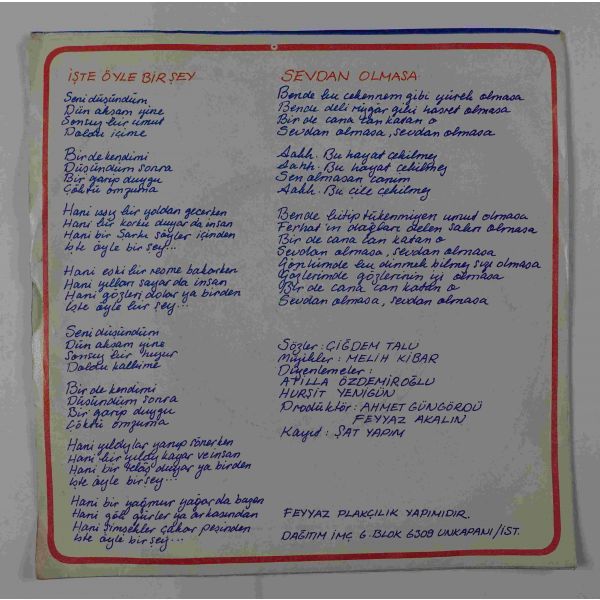 İŞTE ÖYLE BİR ŞEY
Seni düşündüm
Dün akşam yine
Sonsuz bir umut
Doldu içime
Bir de kendimi
Düşündüm sonra
Bir garip duygu
Çöktü omzuma
Hani ıssız bir yoldan geçerken
Hani bir korku duyar da insan
Hani bir şarkı söyler içinden
İşte öyle bir şey...
Hani eski bir resme bakarken
Hani yılları sayar da insan
Hani gözleri dolar ya birden
İşte öyle bir şey...
Seni düşündüm
Dün akşam yine
Sonsuz bir huzur
Doldu kalbime
Bir de kendimi
Düşündüm sonra
Bir garip duygu
Çöktü omzuma
Hani yıldızlar yanıp sönerken
Hani bir yıldız kayar ve insan
Hani bir telaş duyar ya birden
İşte öyle bir şey...
Hani bir yağmur yağar da bazen
Hani gök gürler ya arkasından
Hani şimşekler çakar peşinden
İşte öyle bir şey...
SEVDAN OLMASA
Bende bu cehennem gibi yürek olmasa
Bende deli rüzgar gibi hasret olmasa
Bir de cana can katan o
Sevdan olmasa, sevdan olmasa
Aahh. Bu hayat çekilmez
Aahh. Bu hayat çekilmez
Sen olmasan canım
Aahh. Bu çile çekilmez
Bende bitip tükenmiyen umut olmasa
Ferhat'ın dağları delen sabrı olmasa
Bir de cana can katan o
Sevdan olmasa, sevdan olmasa
Gönlümde bu dinmek bilmez sızı olmasa
Gözlerimde gözlerinin izi olmasa
Bir de cana can katan o
Sevdan olmasa, sevdan olmasa
Sözler: ÇİĞDEM TALU
Müzikler: MELİH KİBAR
Düzenlemeler:
ATİLLA ÖZDEMİROĞLU
HURŞİT YENİGÜN
Prodüktör: AHMET GÜNGÖRDÜ
FEYYAZ AKALIN
Kayıt: ŞAT YAPIM
FEYYAZ PLAKÇILIK YAPIMIDIR.
DAĞITIM İMÇ 6. BLOK 6309 UNKAPANI/İST.